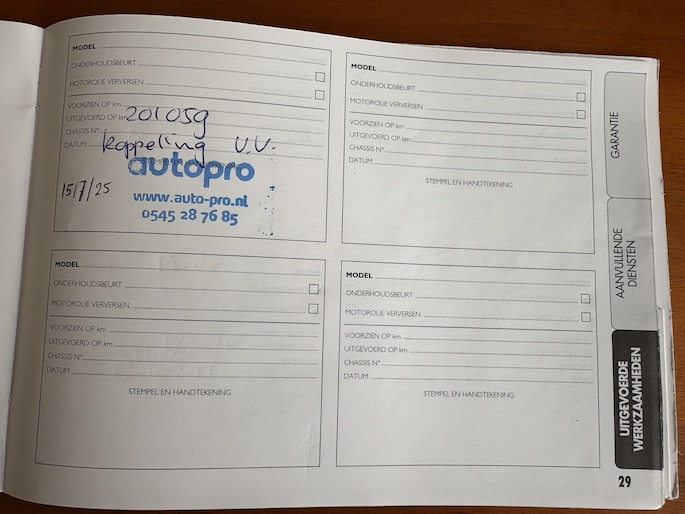 MODEL
ONDERHOUDSBEURT
MOTOROLIE VERVERSEN
VOORZIEN OP km
UITGEVOERD OP km
201059
CHASSIS N°
DATUM
koppeling V.V.
autopro
15/7/25
www.auto-pro.nl
0545 28 76 85
MODEL
ONDERHOUDSBEURT
MOTOROLIE VERVERSEN
VOORZIEN OP km
UITGEVOERD OP km
CHASSIS N°
DATUM
STEMPEL EN HANDTEKENING
MODEL
ONDERHOUDSBEURT
MOTOROLIE VERVERSEN
VOORZIEN OP km
UITGEVOERD OP km
CHASSIS N°
DATUM
STEMPEL EN HANDTEKENING
MODEL
ONDERHOUDSBEURT
MOTOROLIE VERVERSEN
VOORZIEN OP km
UITGEVOERD OP km
CHASSIS N°
DATUM
STEMPEL EN HANDTEKENING
GARANTIE
AANVULLENDE
DIENSTEN
UITGEVOERDE
WERKZAAMHEDEN
29